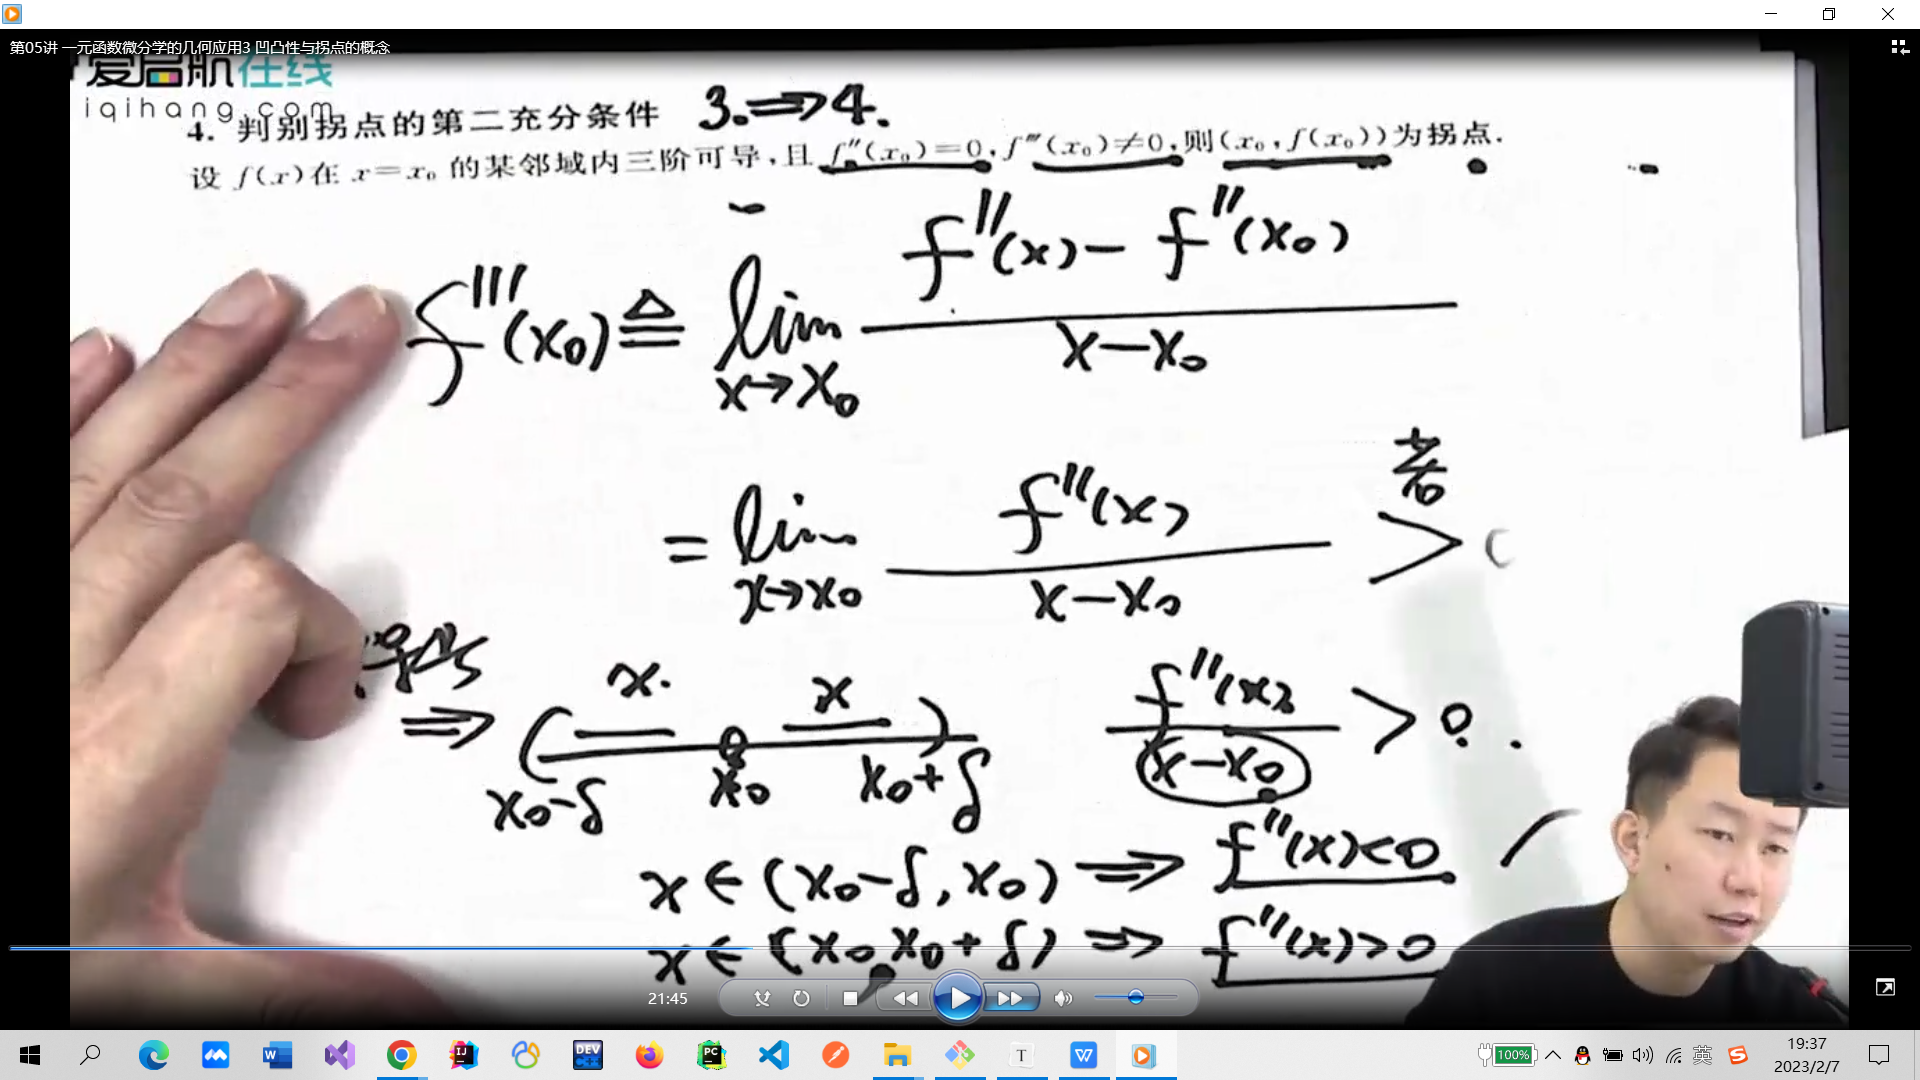 第05讲 一元函数微分学的几何应用3 凹凸性与拐点的概念
爱启航在线
iqihang.com
4. 判别拐点的第二充分条件 3.⇒4.
设 f(x)在 x=x₀ 的某邻域内三阶可导,且 f″(x₀)=0,f‴(x₀)≠0,则(x₀,f(x₀))为拐点.
f‴(x₀) ≜ lim x→x₀ (f″(x)−f″(x₀))/(x−x₀)
= lim x→x₀ f″(x)/(x−x₀) > 0
⇒ ( x x )
x₀−δ x₀ x₀+δ
f″(x)/(x−x₀) > 0.
x∈(x₀−δ,x₀) ⇒ f″(x)<0
x∈(x₀,x₀+δ) ⇒ f″(x)>0
21:45
W
IJ
DEV
C++
PC
T
W
100%
英
S
19:37
2023/2/7